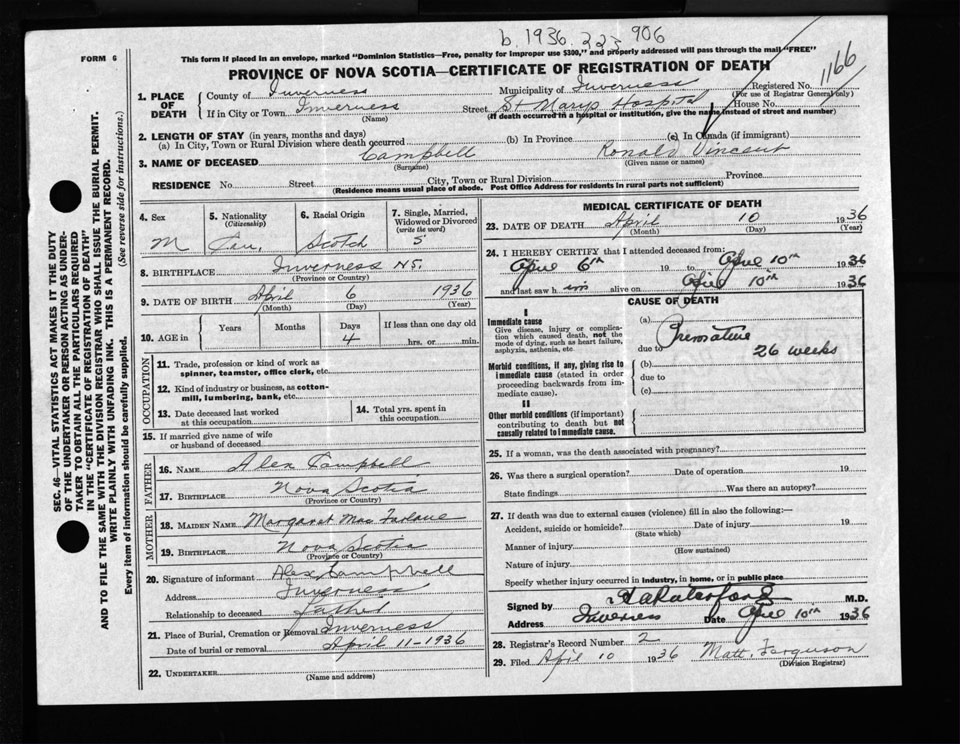 b. 1936. 223 906
FORM 6
This form if placed in an envelope, marked "Dominion Statistics—Free, penalty for improper use $300," and properly addressed will pass through the mail "FREE"
PROVINCE OF NOVA SCOTIA—CERTIFICATE OF REGISTRATION OF DEATH
1166
1. PLACE OF DEATH
County of Inverness Municipality of Inverness Registered No.
(For use of Registrar General only)
If in City or Town Inverness Street St Marys Hospital House No.
(Name) (If death occurred in a hospital or institution, give the name instead of street and number)
2. LENGTH OF STAY (in years, months and days)
(a) In City, Town or Rural Division where death occurred (b) In Province (c) In Canada (if immigrant)
3. NAME OF DECEASED Campbell Ronald Vincent
(Surname) (Given name or names)
RESIDENCE No. Street City, Town or Rural Division Province
(Residence means usual place of abode. Post Office Address for residents in rural parts not sufficient)
SEC. 46—VITAL STATISTICS ACT MAKES IT THE DUTY
OF THE UNDERTAKER OR PERSON ACTING AS UNDER-
TAKER TO OBTAIN ALL THE PARTICULARS REQUIRED
IN THE "CERTIFICATE OF REGISTRATION OF DEATH"
AND TO FILE THE SAME WITH THE DIVISION REGISTRAR WHO SHALL ISSUE THE BURIAL PERMIT.
WRITE PLAINLY WITH UNFADING INK. THIS IS A PERMANENT RECORD.
Every item of information should be carefully supplied. (See reverse side for instructions.)
4. Sex 5. Nationality (Citizenship) 6. Racial Origin 7. Single, Married, Widowed or Divorced (write the word)
M Can. Scotch S
8. BIRTHPLACE Inverness N.S.
(Province or Country)
9. DATE OF BIRTH April 6 1936
(Month) (Day) (Year)
10. AGE in Years Months Days If less than one day old
4 hrs. or min.
OCCUPATION
11. Trade, profession or kind of work as spinner, teamster, office clerk, etc.
12. Kind of industry or business, as cotton-mill, lumbering, bank, etc.
13. Date deceased last worked at this occupation
14. Total yrs. spent in this occupation
15. If married give name of wife or husband of deceased
FATHER
16. NAME Alex Campbell
17. BIRTHPLACE Nova Scotia
(Province or Country)
MOTHER
18. MAIDEN NAME Margaret Mac Farlane
19. BIRTHPLACE Nova Scotia
(Province or Country)
20. Signature of informant Alex Campbell
Address Inverness
Relationship to deceased Father
21. Place of Burial, Cremation or Removal Inverness
Date of burial or removal April 11-1936
22. UNDERTAKER
(Name and address)
MEDICAL CERTIFICATE OF DEATH
23. DATE OF DEATH April 10 1936
(Month) (Day) (Year)
24. I HEREBY CERTIFY that I attended deceased from:
April 6th 19 to April 10th 1936
and last saw h im alive on April 10th 1936
CAUSE OF DEATH
I
Immediate cause
Give disease, injury or complication which caused death, not the mode of dying, such as heart failure, asphyxia, asthenia, etc.
(a) Premature
due to 26 weeks
Morbid conditions, if any, giving rise to immediate cause (stated in order proceeding backwards from immediate cause).
(b)
due to
(c)
II
Other morbid conditions (if important) contributing to death but not causally related to immediate cause.
25. If a woman, was the death associated with pregnancy?
26. Was there a surgical operation? Date of operation 19
State findings Was there an autopsy?
27. If death was due to external causes (violence) fill in also the following:—
Accident, suicide or homicide? Date of injury 19
(State which)
Manner of injury
(How sustained)
Nature of injury
Specify whether injury occurred in industry, in home, or in public place
Signed by M.D.
Address Inverness Date April 10th 1936
28. Registrar's Record Number 2
29. Filed April 10 1936 Matt. Ferguson
(Division Registrar)